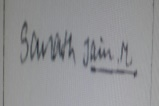 Sarath Jain.M.